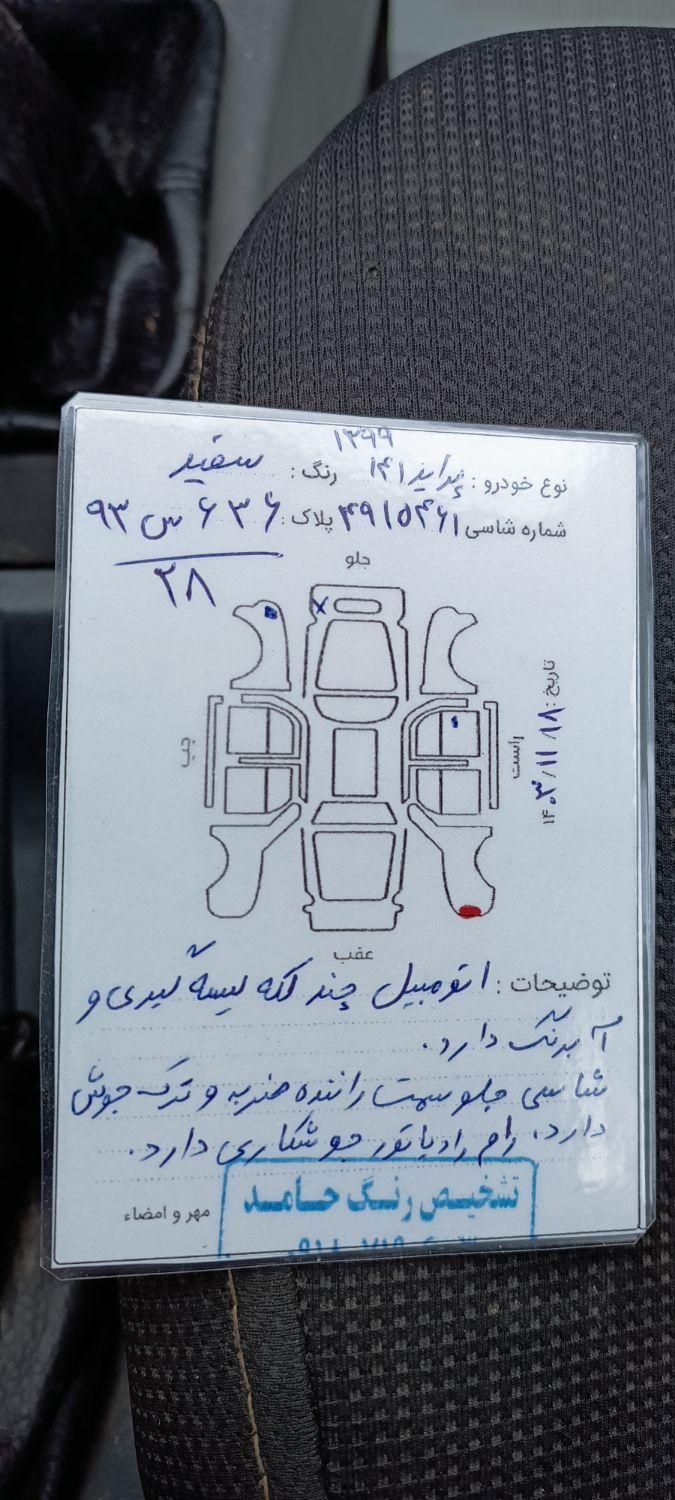 ۱۳۹۹
نوع خودرو : پراید ۱۴۱ رنگ : سفید
شماره شاسی ۴۹۱۵۴۶۱ پلاک : ۶۳۶ س ۹۳
۲۸
جلو
چپ
راست
تاریخ : ۱۴۰۳/۱۱/۱۸
عقب
توضیحات : اتومبیل چند لکه لیسه گیری و
آبرنگ دارد.
شاسی جلو سمت راننده ضربه و ترک جوش
دارد. رام رادیاتور جوشکاری دارد.
تشخیص رنگ حامد
مهر و امضاء